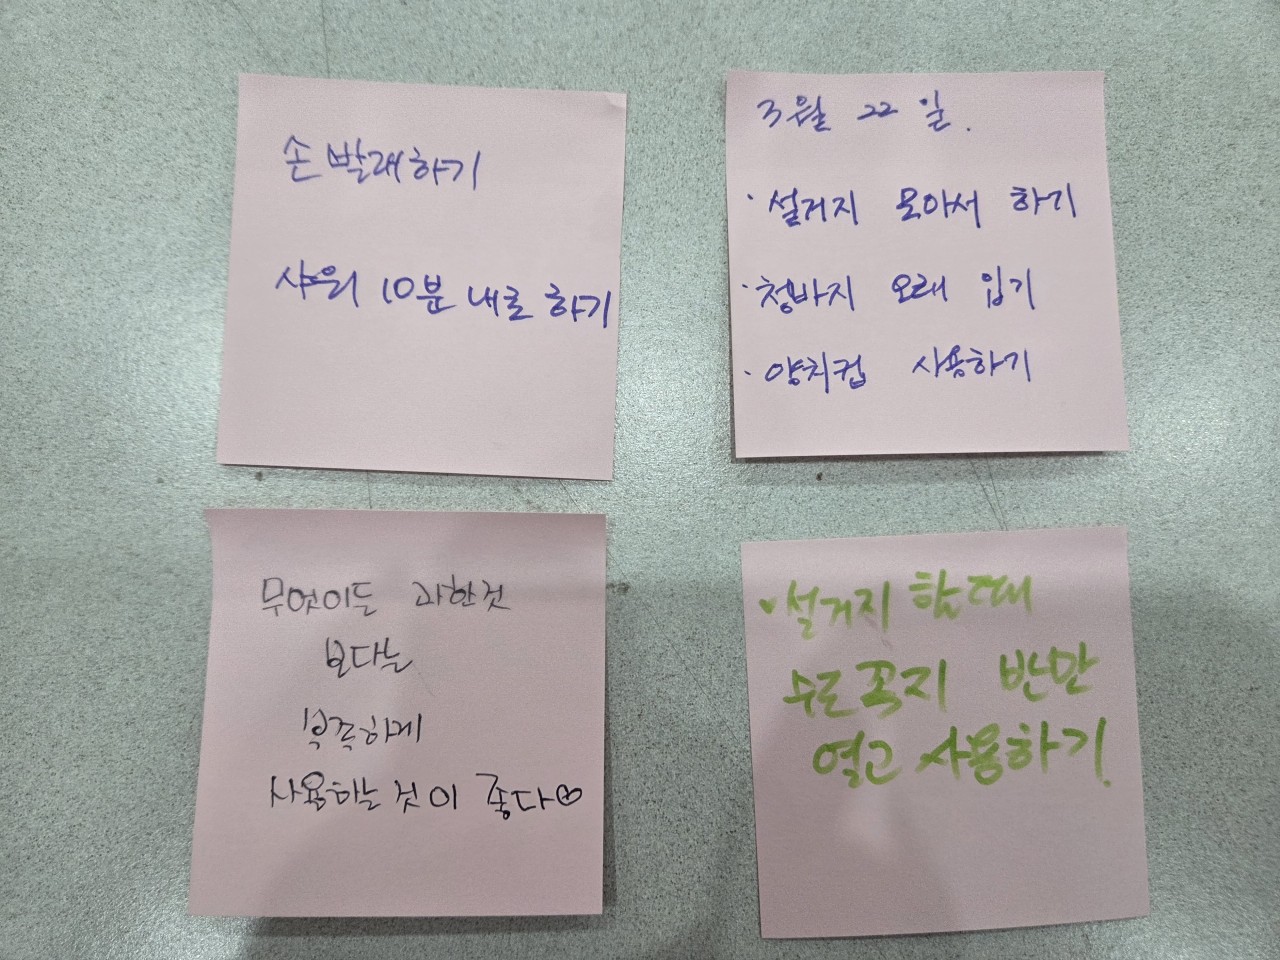 손 빨래하기
샤워 10분 내로 하기
3월 22일.
· 설거지 모아서 하기
· 청바지 오래 입기
· 양치컵 사용하기
무엇이든 과한것
보다는
부족하게
사용하는 것이 좋다♡
· 설거지 할때
수도꼭지 반만
열고 사용하기.